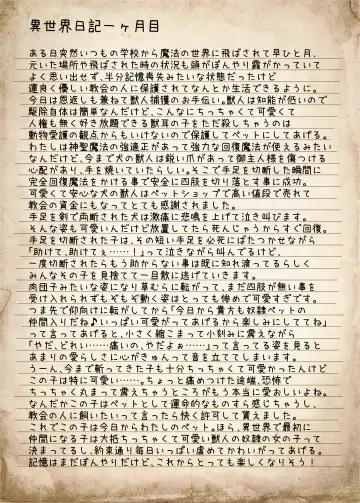 異世界日記一ヶ月目
ある日突然いつもの学校から魔法の世界に飛ばされて早ひと月、
元いた場所や飛ばされた時の状況も頭がぼんやり霧がかっていて
よく思い出せず、半分記憶喪失みたいな状態だったけど
運良く優しい教会の人に保護されてなんとか生活できるように。
今日は恩返しも兼ねて獣人捕獲のお手伝い。獣人は知能が低いので
駆除自体は簡単なんだけど、こんなにちっちゃくて可愛くて
人権も無く好き放題できる獣耳の子をただ殺しちゃうのは
動物愛護の観点からもいけないので保護してペットにしてあげる。
わたしは神聖魔法の強適正があって強力な回復魔法が使えるみたい
なんだけど、今まで犬の獣人は鋭い爪があって御主人様を傷つける
心配があり、手を焼いていたらしい。そこで手足を切断した瞬間に
完全回復魔法をかける事で安全に四肢を切り落とす事に成功。
可愛くて安心な犬の獣人はペットショップで高い値段で売れて
教会の資金にもなってとても感謝されました。
手足を剣で両断された犬は激痛に悲鳴を上げて泣き叫びます。
そんな姿も可愛いんだけど放置してたら死んじゃうからすぐ回復。
手足を切断された子は、その短い手足を必死にばたつかせながら
「助けて、助けてぇ……!」って泣きながら叫んでるけど、
一度切断されたらもう助からない事は既に知れ渡ってるらしく
みんなその子を見捨てて一目散に逃げていきます。
肉団子みたいな姿になり草むらに転がって、まだ四肢が無い事を
受け入れられずもぞもぞ動く姿はとっても惨めで可愛すぎです。
つま先で仰向けに転がしてから「今日から貴方も奴隷ペットの
仲間入りだね♪いっぱい可愛がってあげるから楽しみにしててね」
って言ってあげると、小さく縮こまって小刻みに震えながら
「やだ、どれい……痛いの、やだよぉ……」って言ってる姿を見ると
あまりの愛らしさに心がきゅんって音を立ててしまいます。
うーん、今まで斬ってきた子も十分ちっちゃくて可愛かったんけど
この子は特に可愛い……。ちょっと痛めつけた途端、恐怖で
ちっちゃく丸まって震えちゃうところがもう本当に愛おしいよね。
なんだかこの子はペットとして運命的なものすら感じちゃうし、
教会の人に飼いたいって言ったら快く許可して貰えました。
これでこの子は今日からわたしのペット。ほら、異世界で最初に
仲間になる子は大抵ちっちゃくて可愛い獣人の奴隷の女の子って
決まってるし、約束通り毎日いっぱい虐めてかわいがってあげる。
記憶はまだぼんやりだけど、これからとっても楽しくなりそう!